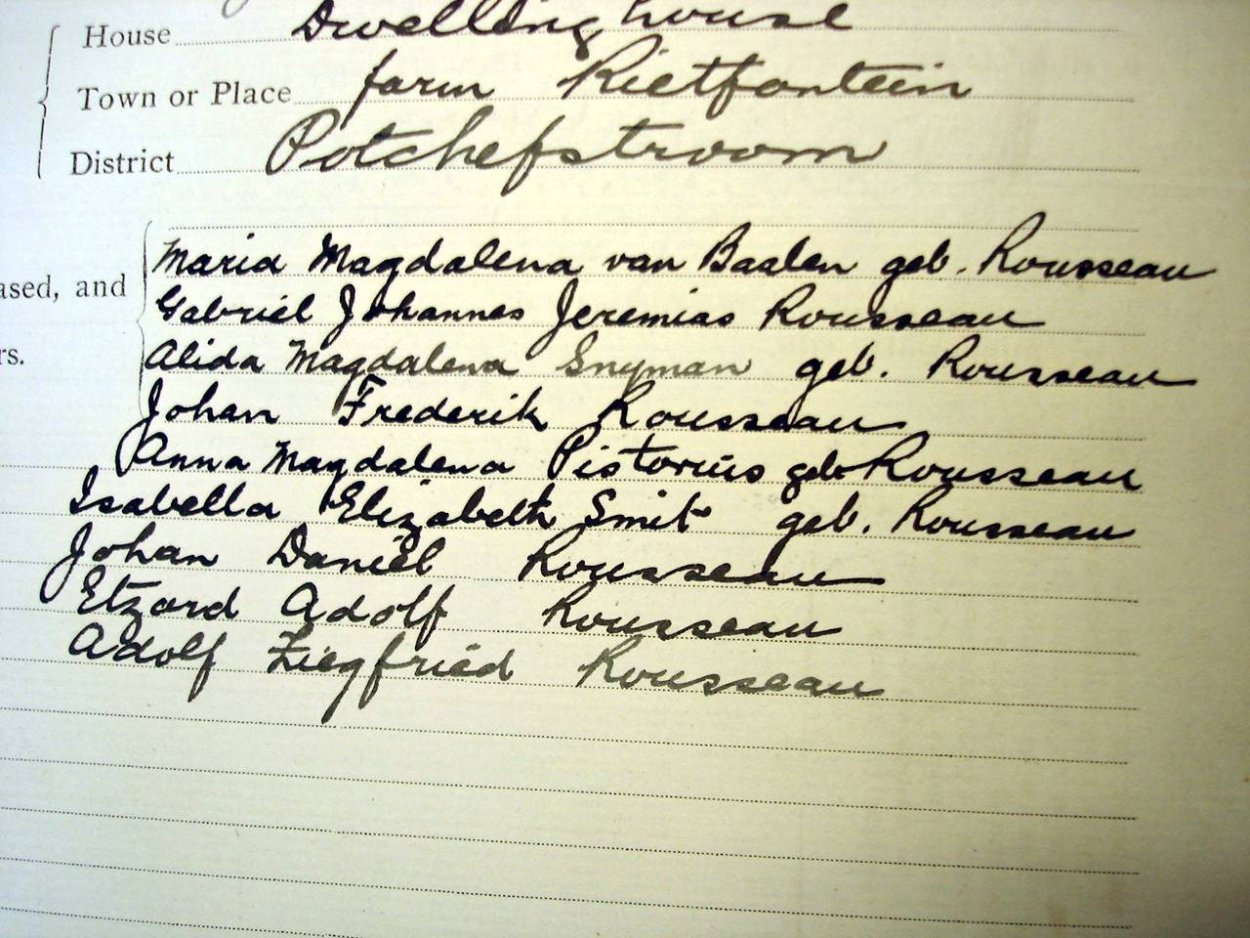 House Dwelling house
Town or Place farm Rietfontein
District Potchefstroom
Maria Magdalena van Baalen geb. Rousseau
ased, and
Gabriel Johannes Jeremias Rousseau
rs.
Alida Magdalena Snyman geb. Rousseau
Johan Frederik Rousseau
Anna Magdalena Pistorius geb Rousseau
Isabella Elizabeth Smit geb. Rousseau
Johan Daniel Rousseau
Etzard Adolf Rousseau
Adolf Ziegfried Rousseau